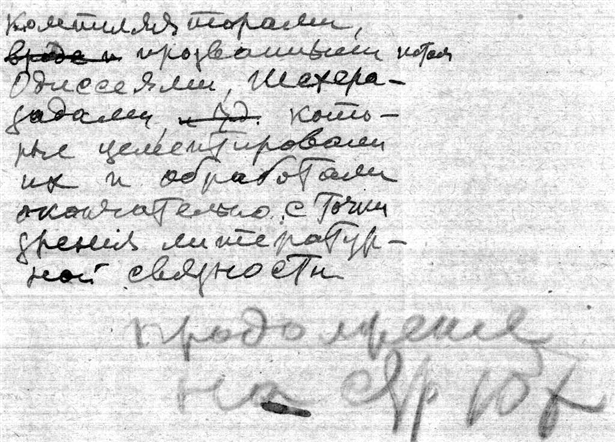 компиляторами,
вроде и прозванными потом
Одиссеями, Шехера-
задами, и др. кото-
рые цементировали
их и обработали
окончательно с точки
зрения литератур-
ной связности
продолжение
на стр